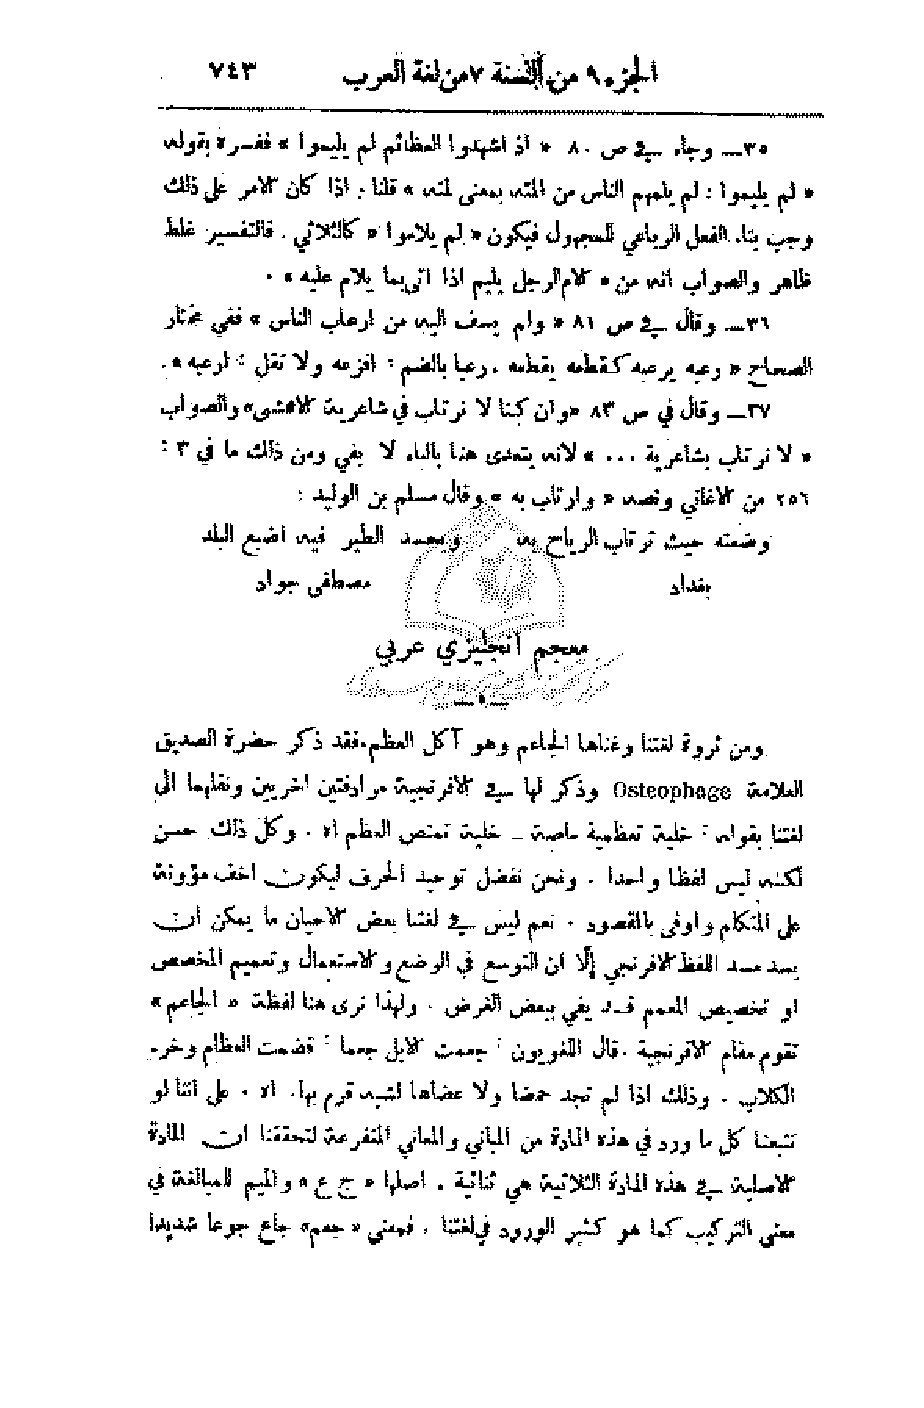 الجزء ٩ من السنة ٧ من لغة العرب ٧٤٣
٣٥ـ وجاء في ص ٨٠ « اذ اشهدوا العظائم لم يليموا » ففسره بقوله
« لم يليموا : لم يلمهم الناس من المته بمعنى لمته » قلنا : اذا كان الامر على ذلك
وجب بناء الفعل الرباعي للمجهول فيكون « لم يلاموا » كالثلاثي . فالتفسير غلط
ظاهر والصواب انه من « الام الرجل يليم اذا اتى بما يلام عليه » .
٣٦ـ وقال في ص ٨١ « ولم يسف اليه من ارعاب الناس » ففي مختار
الصحاح « رعبه يرعبه كقطعه يقطعه . رعبا بالضم : افزعه ولا تقل : ارعبه » .
٣٧ـ وقال في ص ٨٣ «وان كنا لا نرتاب في شاعرية الاعشى» والصواب
« لا نرتاب بشاعرية ... » لانه يتعدى هنا بالباء لا بفي ومن ذلك ما في ٣ :
٢٥٦ من الاغاني ونصه « وارتاب به » وقال مسلم بن الوليد :
وضعته حيث ترتاب الرياح به ويحسد الطير فيه اضبع البلد
بغداد مصطفى جواد
معجم انجليزي عربي
ـ ٥ ـ
ومن ثروة لغتنا وغناها الجاعم وهو آكل العظم . فقد ذكر حضرة الصديق
العلامة Osteophage وذكر لها في الافرنجية مرادفتين اخريين ونقلهما الى
لغتنا بقوله : خلية تعظمية ماصة ـ خلية تمتص العظم اه . وكل ذلك حسن
لكنه ليس لفظا واحدا . ونحن نفضل توحيد الحرف ليكون اخف مؤونة
على المتكلم واوفى بالمقصود . نعم ليس في لغتنا بعض الاحيان ما يمكن ان
يسد مسد اللفظ الافرنجي إلّا ان التوسع في الوضع والاستعمال وتعميم المخصص
او تخصيص المعمم قد يفي ببعض الغرض . ولهذا نرى هنا لفظة « الجاعم »
تقوم مقام الافرنجية . قال اللغويون : جعمت الابل جعما : قضمت العظام وخرء
الكلاب . وذلك اذا لم تجد حمضا ولا عضاها لشبه قرم بها . اه . على اننا لو
تتبعنا كل ما ورد في هذه المادة من المباني والمعاني المتفرعة لتحققنا ان المادة
الاصلية في هذه المادة الثلاثية هي ثنائية . اصلها « ج ع » والميم للمبالغة في
معنى التركيب كما هو كثير الورود في لغتنا . فمعنى « جعم» جاع جوعا شديدا